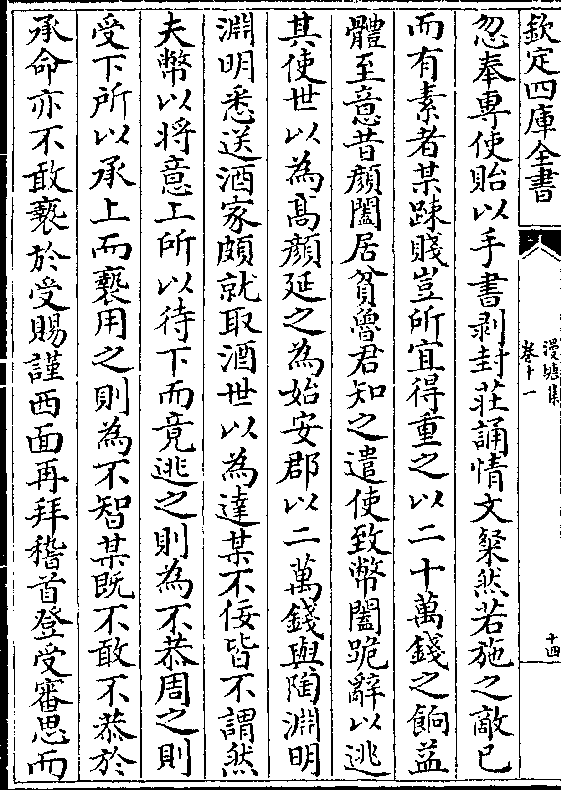 欽定四庫全書
漫塘集
卷十一
十四
忽奉專使貽以手書剥封莊誦情文粲然若施之敵已
而有素者某踈賤豈所宜得重之以二十萬錢之餉益
體至意昔顔闔居貧魯君知之遣使致幣闔跪辭以逃
其使世以為髙顔延之為始安郡以二萬錢與陶淵明
淵明悉送酒家頗就取酒世以為達某不佞皆不謂然
夫幣以将意上所以待下而竟逃之則為不恭周之則
受下所以承上而褻用之則為不智某既不敢不恭於
承命亦不敢褻於受賜謹西面再拜稽首登受審思而